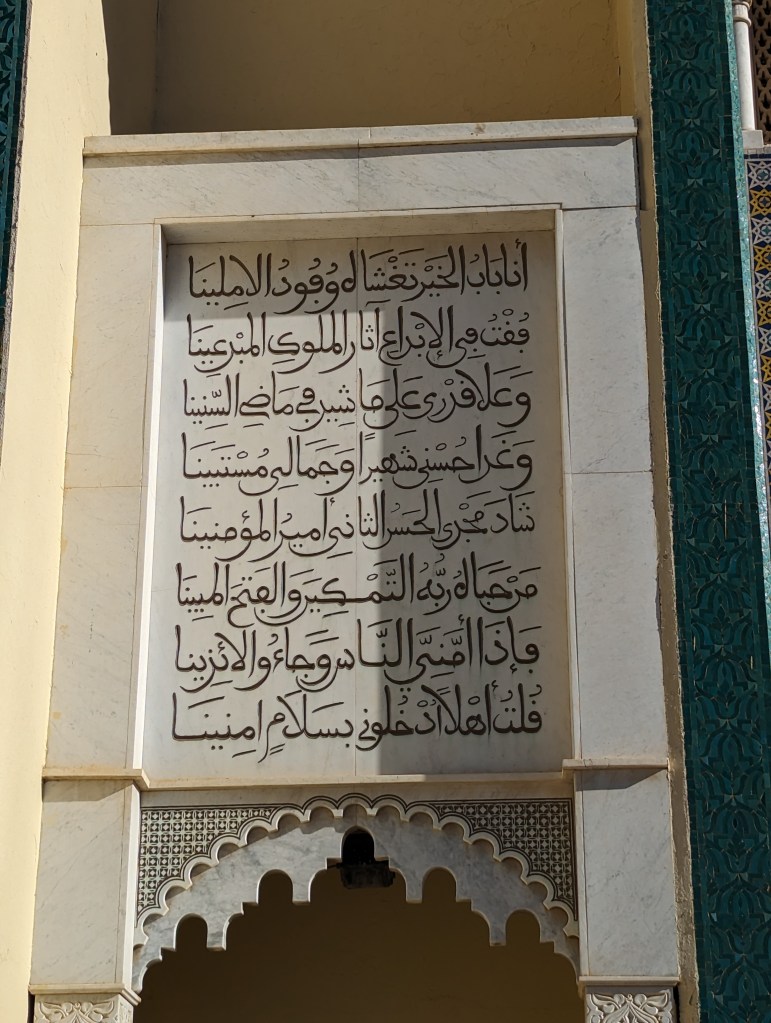 أنا بابُ الخَيْر تَغْشَاه وُفُودُ الامِلينَا
فُقْتُ فِي الإبْدَاع آثار الملوك المبْدعِينَا
وَعَلا قدْرى عَلى مَا شيد في مَاضِي السِّنِينا
وَغَدا حُسْني شَهيراً وَجَمالي مُسْتَبينَا
شَادَ مَجْدي الحَسَنُ الثاني أميرُ المؤمنينَا
مَنْ حَبَاهُ رَبُّهُ التَّمْكِينَ وَالفَتحَ المبينَا
فَإذَا أمَّنِيَ النَّاس وَجاءُوا لائذِينا
قُلتُ أهْلاً ادْخُلوني بسَلامٍ امِنِينَا